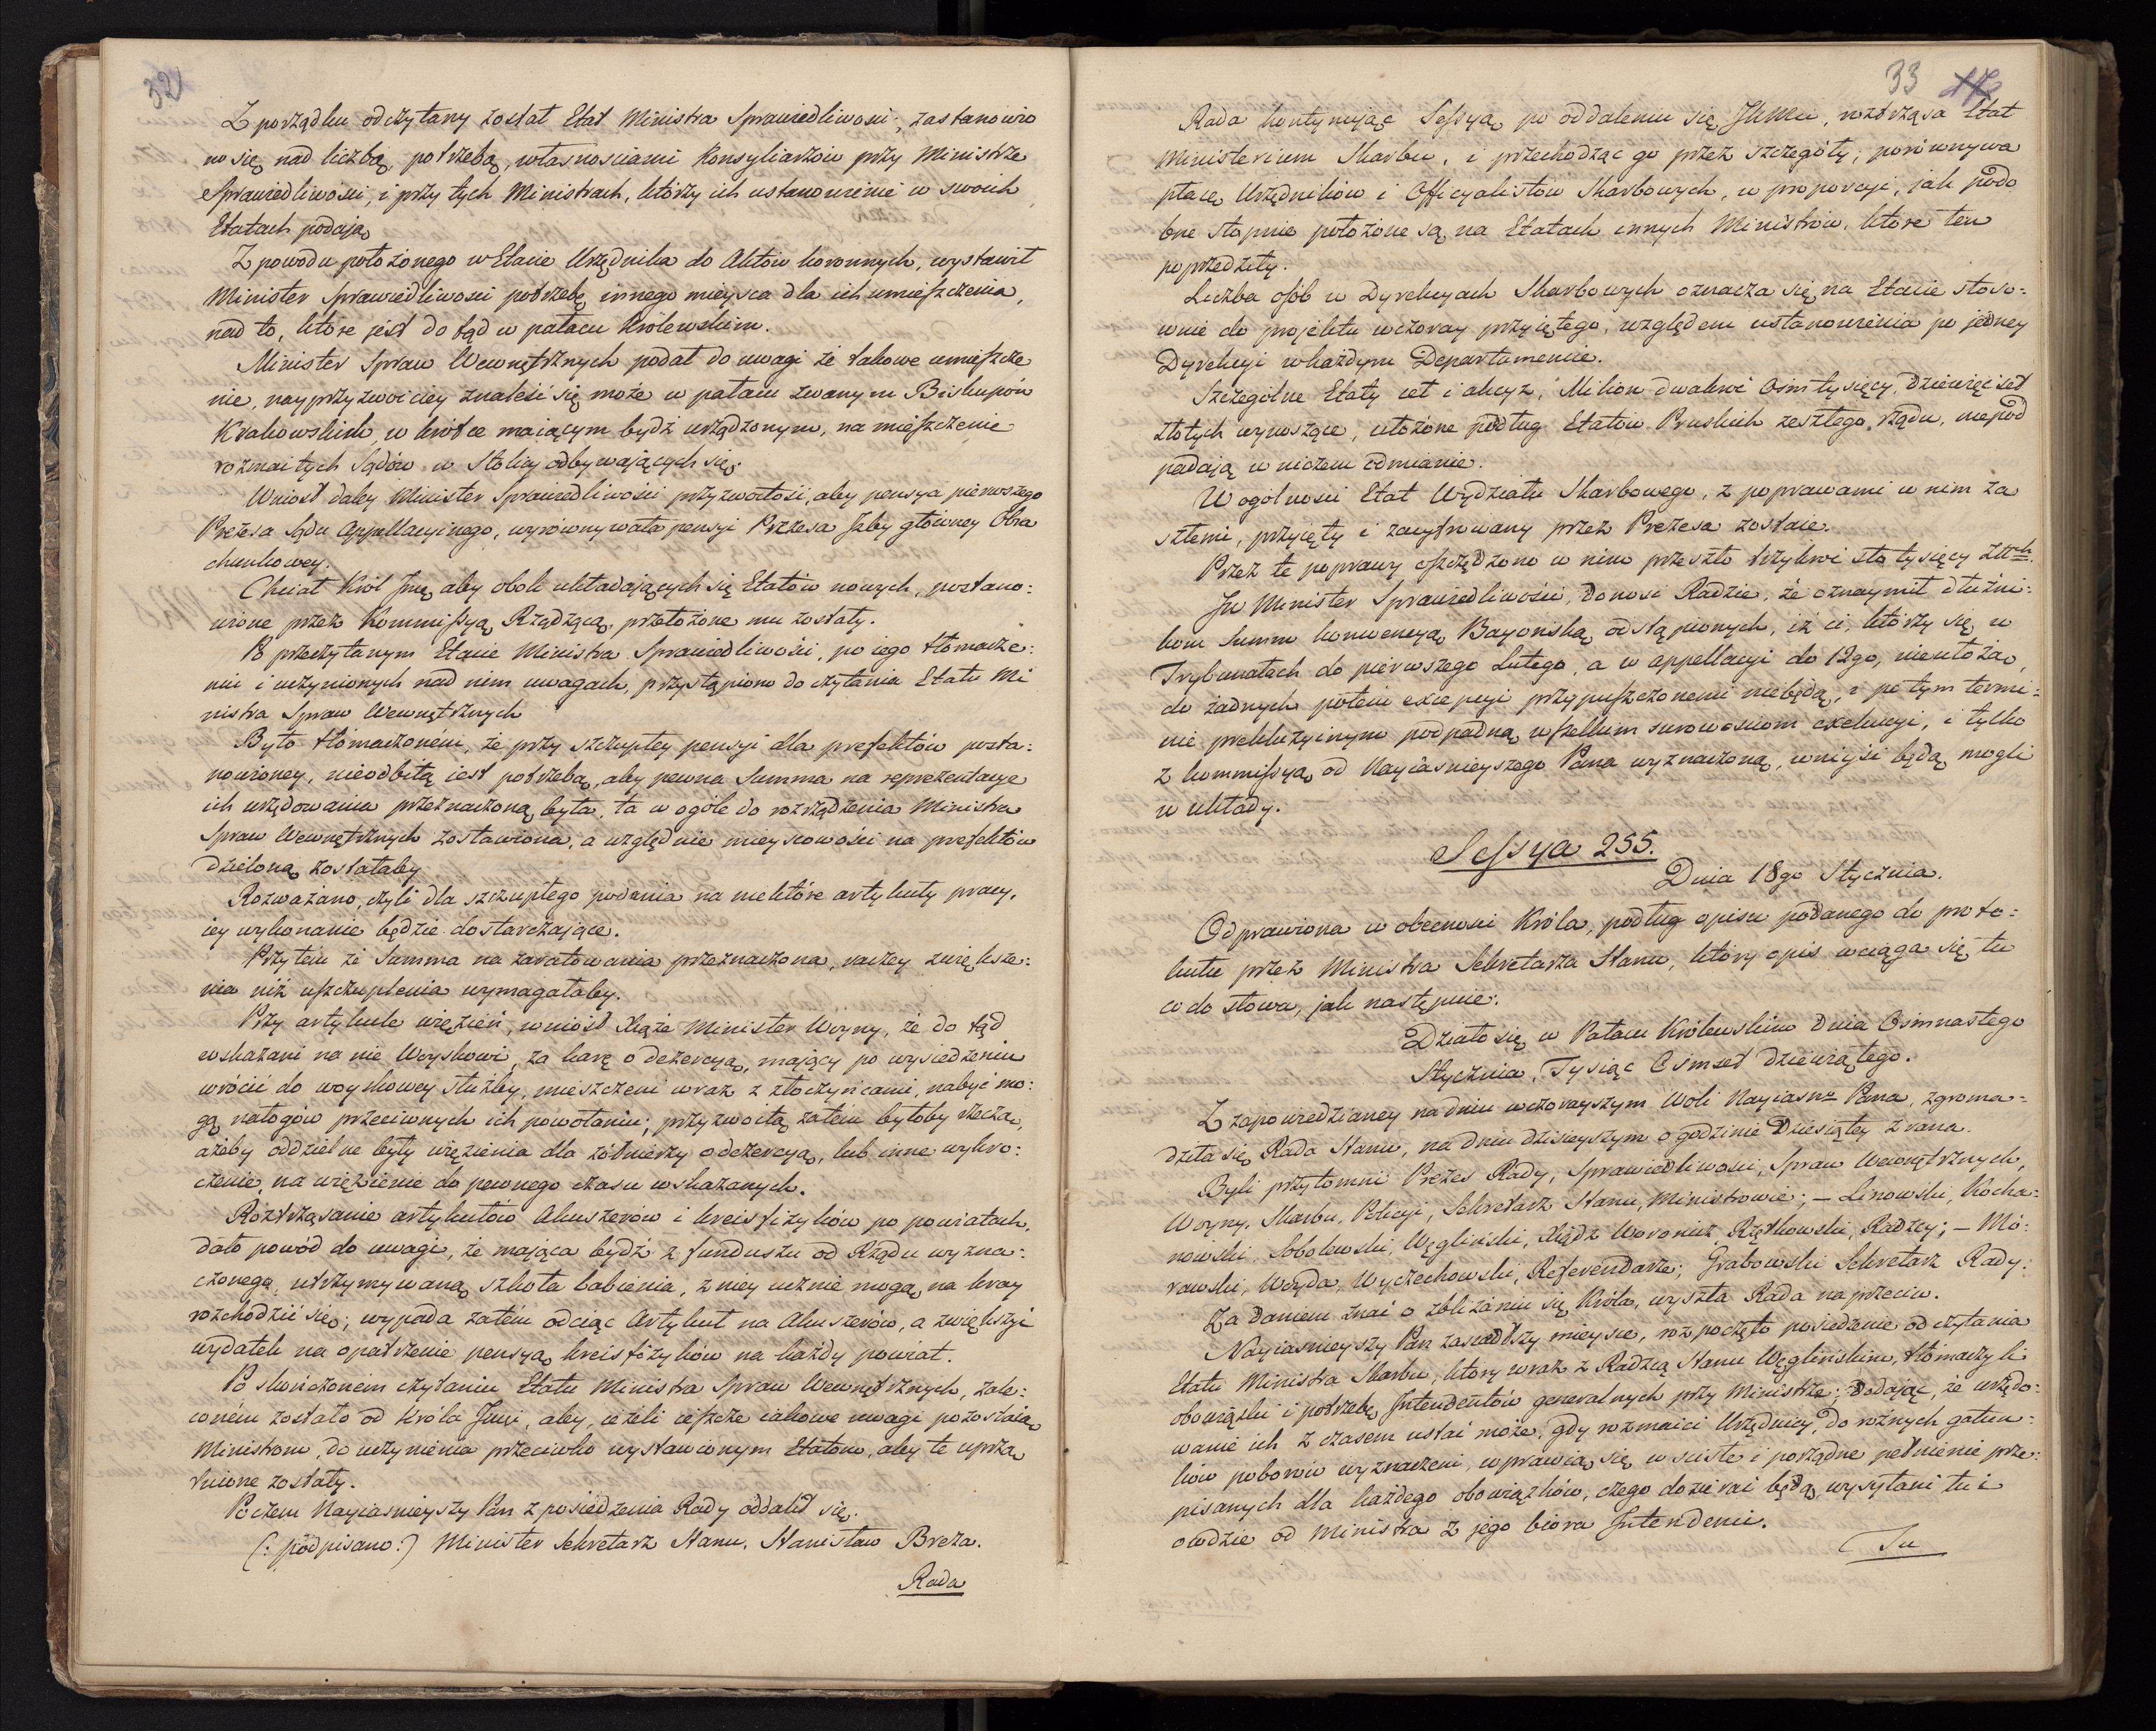 32
Z porządku odczytany został Etat Ministra Sprawiedliwości; zastanowio
no się nad liczbą, potrzebą, własnościami Konsyliarzów przy Ministrze
Sprawiedliwości, i przy tych Ministrach, którzy ich ustanowienie w swoich
Etatach podają
Z powodu położonego w Etacie Urzędnika do Aktów koronnych, wystawił
Minister Sprawiedliwości potrzebę innego mieysca dla ich umieszczenia,
nad to, które jest do tąd w pałacu Królewskim.
Minister Spraw Wewnętrznych podał do uwagi że takowe umieszcze
nie, nayprzyzwoiciey znaleść się może w pałacu zwanym Biskupów
Krakowskich, w krótce maiącym bydź urządzonym, na mieszczenie
rozmaitych Sądów w Stolicy odbywających się.
Wniosł daley Minister Sprawiedliwości przyzwoitość, aby pensya pierwszego
Prezesa Sądu Appellacyinego, wyrównywała pensyi Prezesa Izby główney Obra
chunkowey.
Chciał Król Jmć, aby obok układających się Etatów nowych, postano:
wione przez Kommissyą Rządzącą, przełożone mu zostały.
Po przeczytanym Etacie Ministra Sprawiedliwości, po iego tłomacze:
niu i uczynionych nad nim uwagach, przystąpiono do czytania Etatu Mi
nistra Spraw Wewnętrznych
Było tłómaczoném, że przy szczupłey pensyi dla prefektów posta:
nowioney, nieodbitą iest potrzebą, aby pewna Summa na reprezentacye
ich urzędowania przeznaczoną była, ta w ogóle do rozrządzenia Ministra
Spraw Wewnętrznych zostawiona, a względnie mieyscowości na prefektów
dzieloną zostałaby
Rozważano, czyli dla szczupłego podania na niektóre artykuły pracy,
iey wykonanie będzie dostarczające.
Przytém że Summa na zaratowania przeznaczona, raczey zwiększe:
nia niż uszczuplenia wymagałaby.
Przy artykule więzień, wniósł Xiąże Minister Woyny, że do tąd
wskazani na nie Woyskowi, za karę o dezercyą, mający po wysiedzeniu
wrócić do woyskowey służby, mieszczeni wraz z złoczyńcami, nabyć mo:
gą nałogów przeciwnych ich powołaniu; przyzwoitą zatem byłoby rzeczą,
ażeby oddzielne były więzienia dla żółnierzy o dezercyą, lub inne wykro:
czenie, na więzienie do pewnego czasu wskazanych.
Roztrząsanie artykułów Akuszerów i kreisfizyków po powiatach,
dało powód do uwagi, że mająca bydź z funduszu od Rządu wyzna:
czonego, utrzymywaną szkoła babienia, z niey ucznie mogą na kray
rozchodzić się; wypada zatém odciąc Artykuł na Akuszerów, a zwiększyć
wydatek na opatrzenie pensyą kreisfizyków na każdy powiat.
Po skończoném czytaniu Etatu Ministra Spraw Wewnętrznych, zale:
coném zostało od Króla Jmci, aby, ieżeli ieszcze iakowe uwagi pozostaią
Ministrom, do uczynienia przeciwko wystawionym Etatom, aby te uprzą
tnione zostały.
Poczem Nayiasnieyszy Pan z posiedzenia Rady oddalił się.
(: podpisano:) Minister Sekretarz Stanu, Stanisław Breza.
Rada
33
Rada kontynując Sessyą po oddaleniu się JKMci, roztrząsa Etat
Ministerium Skarbu, i przechodząc go przez szczegóły, porównywa
płacę Urzędników i Officyalistów Skarbowych, w proporcyi, jak podo
bne stopnie położone są na Etatach innych Ministrów, które ten
poprzedziły.
Liczba osób w Dyrekcyach Skarbowych oznacza się na Etacie stoso:
wnie do projektu wczoray przyiętego, względem ustanowienia po jedney
Dyrekcyi w każdym Departamencie.
Szczególne Etaty cet i akcyz, Milion dwakroć Ośm tysięcy, Dziewięćset
złotych wynoszące, ułożone podług Etatów Pruskich zeszłego rządu, niepod
padają w niczem odmianie.
W ogólności Etat Wydziału Skarbowego, z poprawami w nim za
szłemi, przyięty i zacyfrowany przez Prezesa zostaie.
Przez te poprawy oszczędzono w nim przeszło trzykroć sto tysięcy Złtch.
Jw Minister Sprawiedliwości, donosi Radzie, że oznaymił dłużni:
kom Summ konwencyą Bayońską odstąpionych, iż ci, którzy się w
Trybunałach do pierwszego Lutego, a w appellacyi do 12go, nieułożą,
do żadnych potém excepcyi przypuszczonemi niebędą, i po tym termi:
nie prekluzyinym podpadną wszelkim surowościom exekucyi, i tylko
z kommissyą od Nayiasnieyszego Pana wyznaczoną, wniyść będą mogli
w układy.
Sessya 255.
Dnia 18go Stycznia.
Odprawiona w obecności Króla, podług opisu podanego do proto:
kułu przez Ministra Sekretarza Stanu, który opis wciąga się tu
co do słowa, jak następuie:
Działo się w Pałacu Królewskim Dnia Osimnastego
Stycznia, Tysiąc Ośmset dziewiątego.
Z zapowiedzianey na dniu wczorayszym Woli Nayiasno Pana, zgroma:
dziła się Rada Stanu, na dniu dzisieyszym o godzinie Dziesiątey z rana.
Byli przytomni Prezes Rady, Sprawiedliwości, Spraw Wewnętrznych,
Woyny, Skarbu, Policyi, Sekretarz Stanu, Ministrowie; – Linowski, Kocha:
nowski, Sobolewski, Węgliński, Xiądz Woronicz, Rzętkowski, Radzcy; – Mo:
rawski, Woyda, Wyczechowski, Referendarze; Grabowski Sekretarz Rady.
Za daniem znać o zbliżaniu się Króla, wyszła Rada naprzeciw.
Nayiasnieyszy Pan zasiadłszy mieysce, rozpoczęto posiedzenie od czytania
Etatu Ministra Skarbu, który wraz z Radzcą Stanu Węglińskim, tłómaczyli
obowiązki i potrzebę Intendentów generalnych przy Ministrze; Dodając, że urzędo:
wanie ich z czasem ustać może, gdy rozmaici Urzędnicy, do róźnych gatun:
ków poborów wyznaczeni, wprawią się w ścisłe i porządne pełnienie prze:
pisanych dla każdego obowiązków, czego dozierać będą wysyłani tu i
owdzie od Ministra z jego biora Intendenci.
Ju